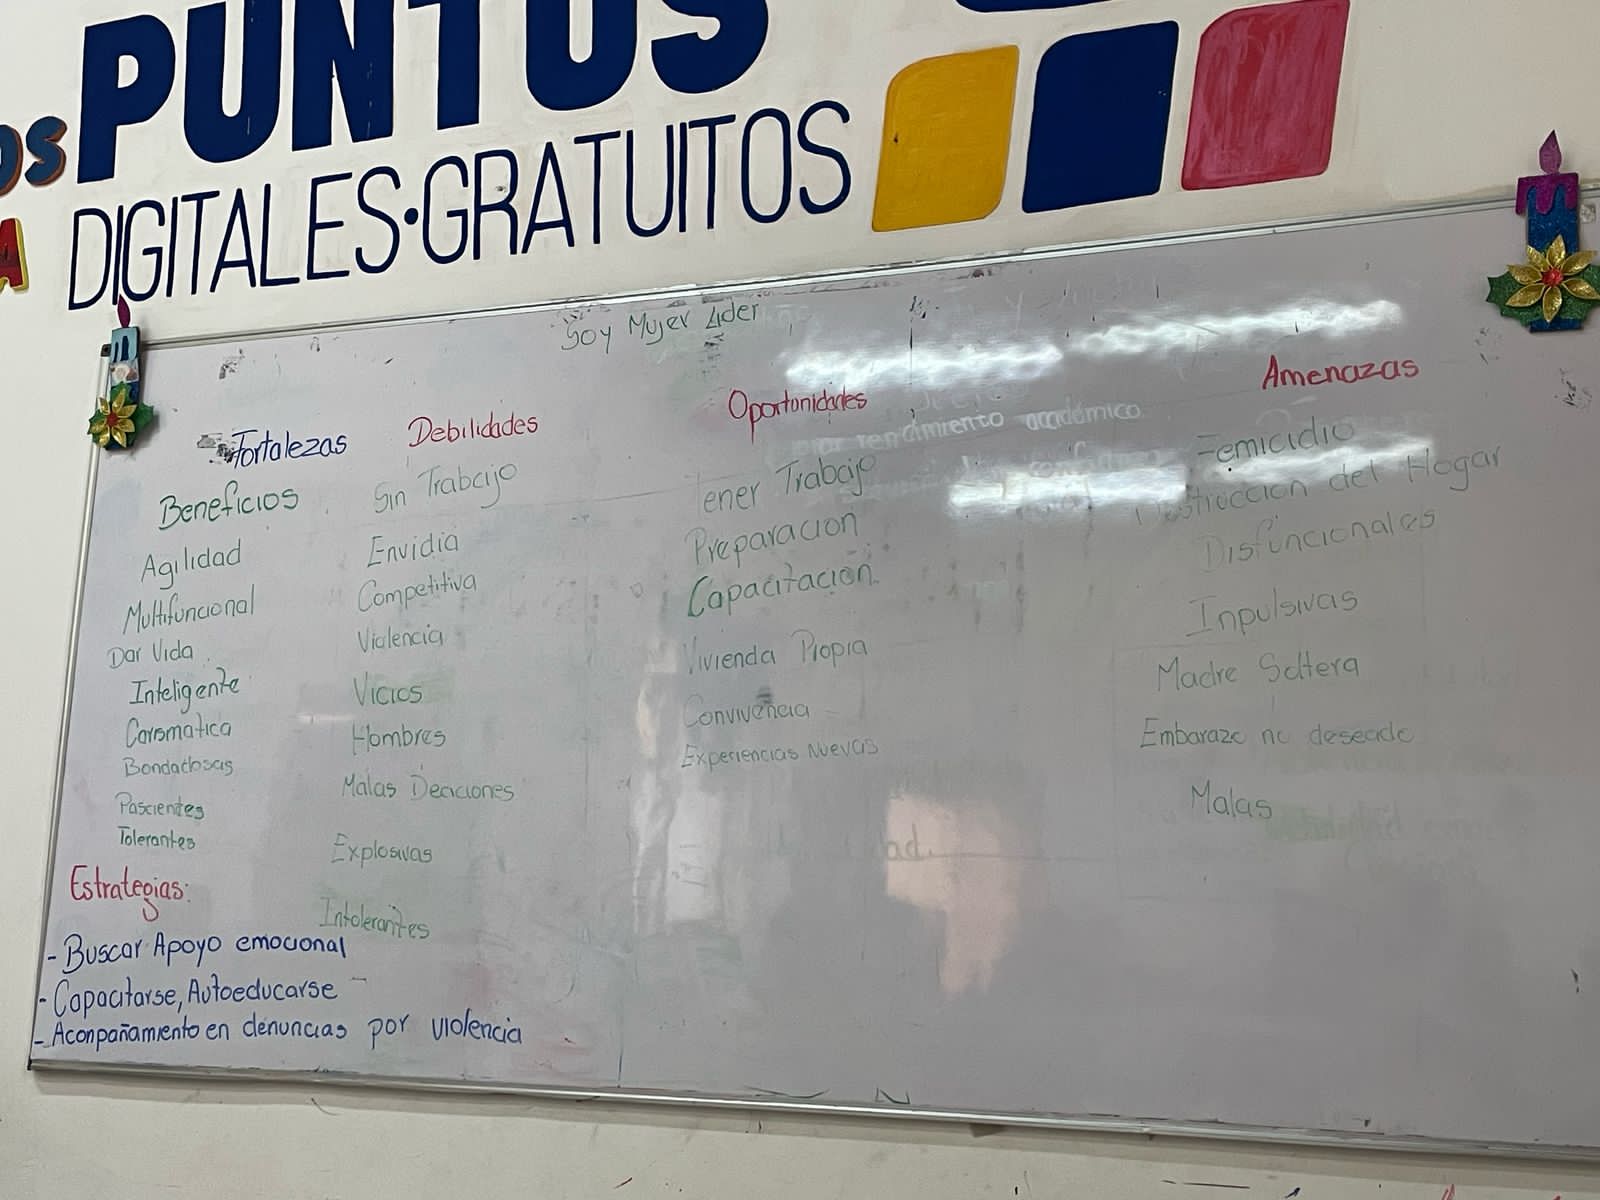 os PUNTOS
A DIGITALES•GRATUITOS
Soy Mujer Lider
Fortalezas
Beneficios
Agilidad
Multifuncional
Dar Vida
Inteligente
Carismatica
Bondadosas
Pascientes
Tolerantes
Debilidades
Sin Trabajo
Envidia
Competitiva
Violencia
Vicios
Hombres
Malas Deciciones
Explosivas
Intolerantes
Oportunidades
rendimiento académico
Tener Trabajo
Preparacion
Capacitacion.
Vivienda Propia
Convivencia
Experiencias Nuevas
Amenazas
Femicidio
del Hogar
Disfuncionales
Inpulsivas
Madre Soltera
Embarazo no deseado
Malas
Estrategias:
- Buscar Apoyo emocional
- Capacitarse, Autoeducarse
- Aconpañamiento en denuncias por violencia